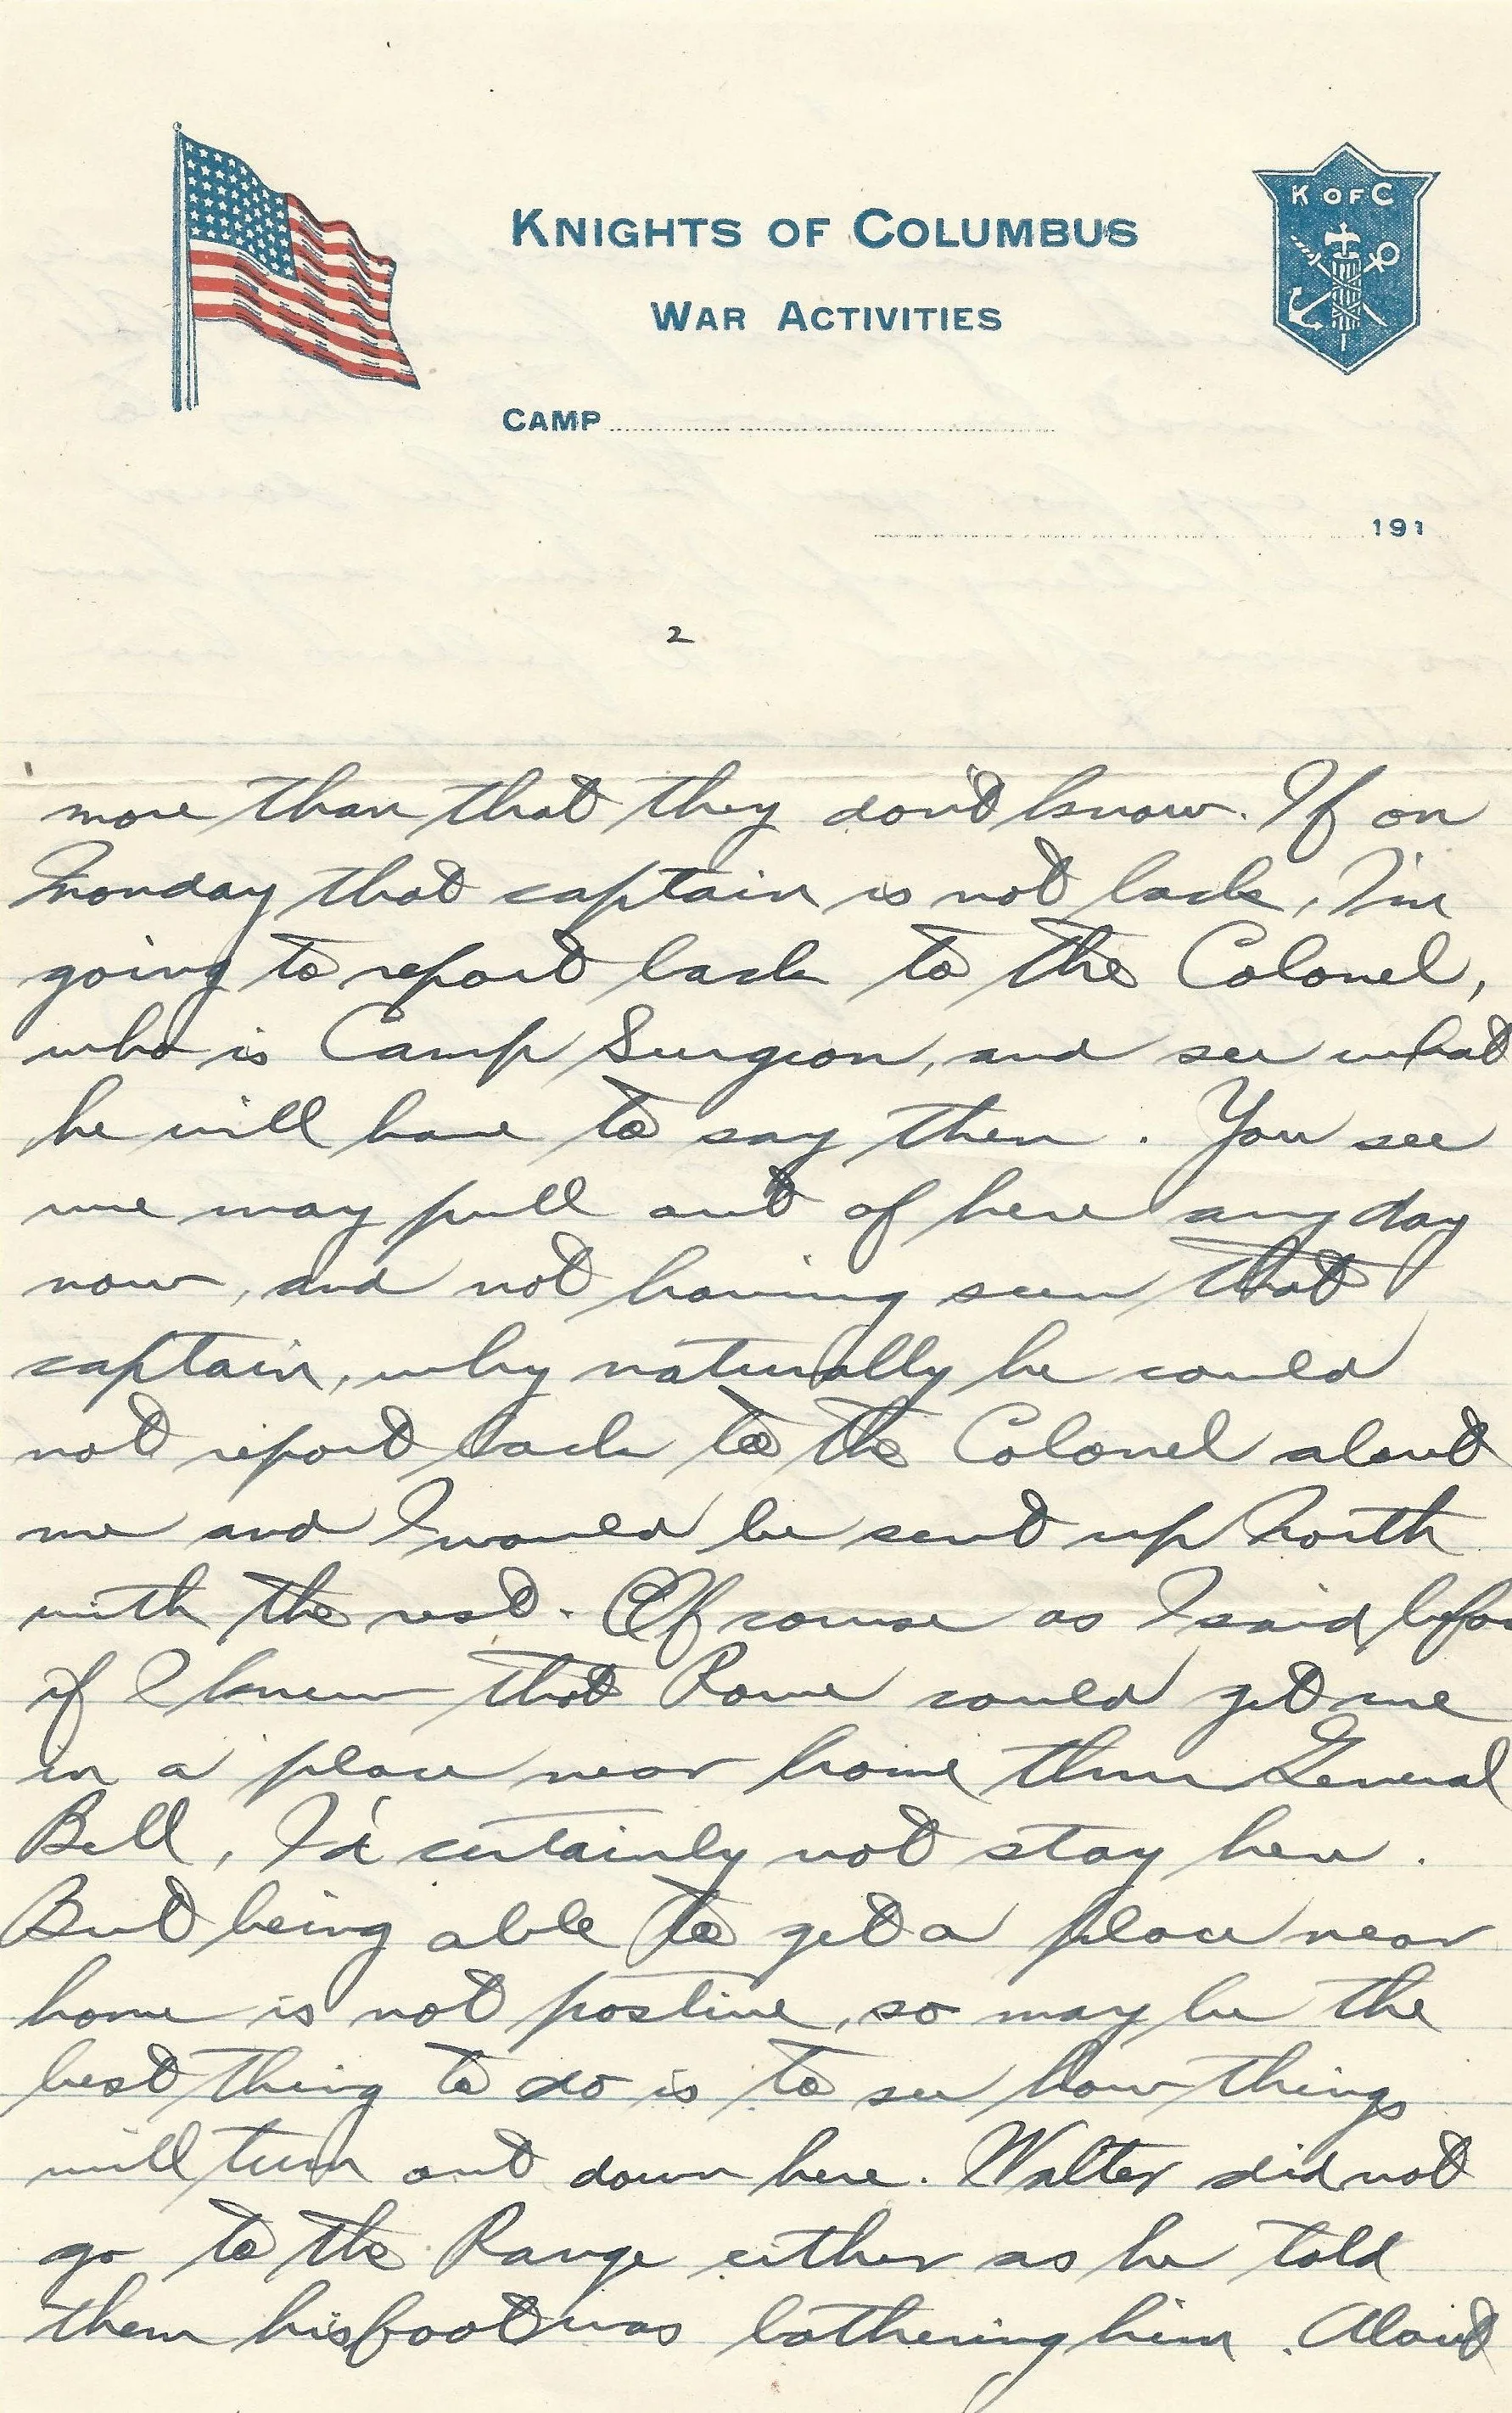 K OF C
KNIGHTS OF COLUMBUS
WAR ACTIVITIES
CAMP
191
2
more than that they don't know. If on
Monday that captain is not back, I'm
going to report back to the Colonel,
who is Camp Surgeon, and see what
he will have to say then. You see
we may pull out of here any day
now, and not having seen that
captain, why naturally he could
not report back to the Colonel about
me and I would be sent up North
with the rest. Of course as I said befor
if I knew that Rowe could get me
in a place near home thru General
Bell, I'd certainly not stay here.
But being able to get a place near
home is not postive, so may be the
best thing to do is to see how things
will turn out down here. Walter did not
go to the Range either as he told
them his foot was bothering him. About